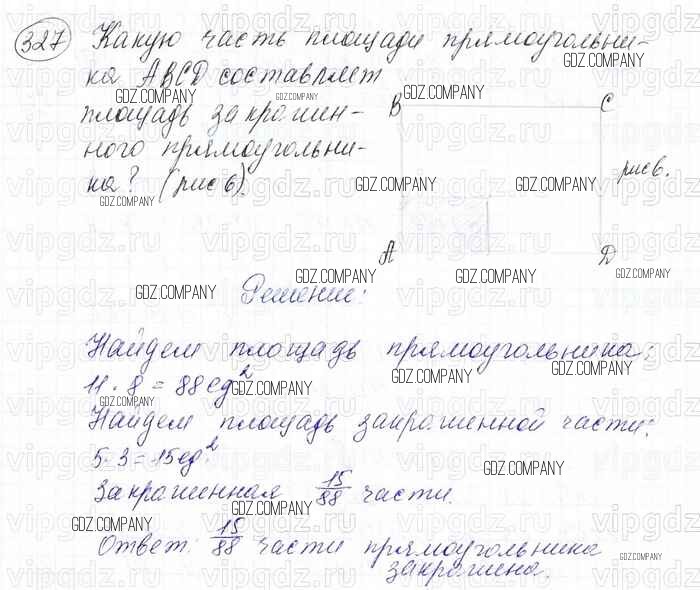 327 Какую часть площади прямоугольни-
ка ABCD составляет
площадь закрашен-
ного прямоугольни-
ка? (рис 6).
B C
рис 6.
A D
Решение:
Найдем площадь прямоугольника:
11 · 8 = 88 ед²
Найдем площадь закрашенной части:
5·3 = 15 ед².
Закрашенная 15/88 части.
Ответ: 15/88 части прямоугольника
закрашена.
GDZ.COMPANY
vipgdz.ru